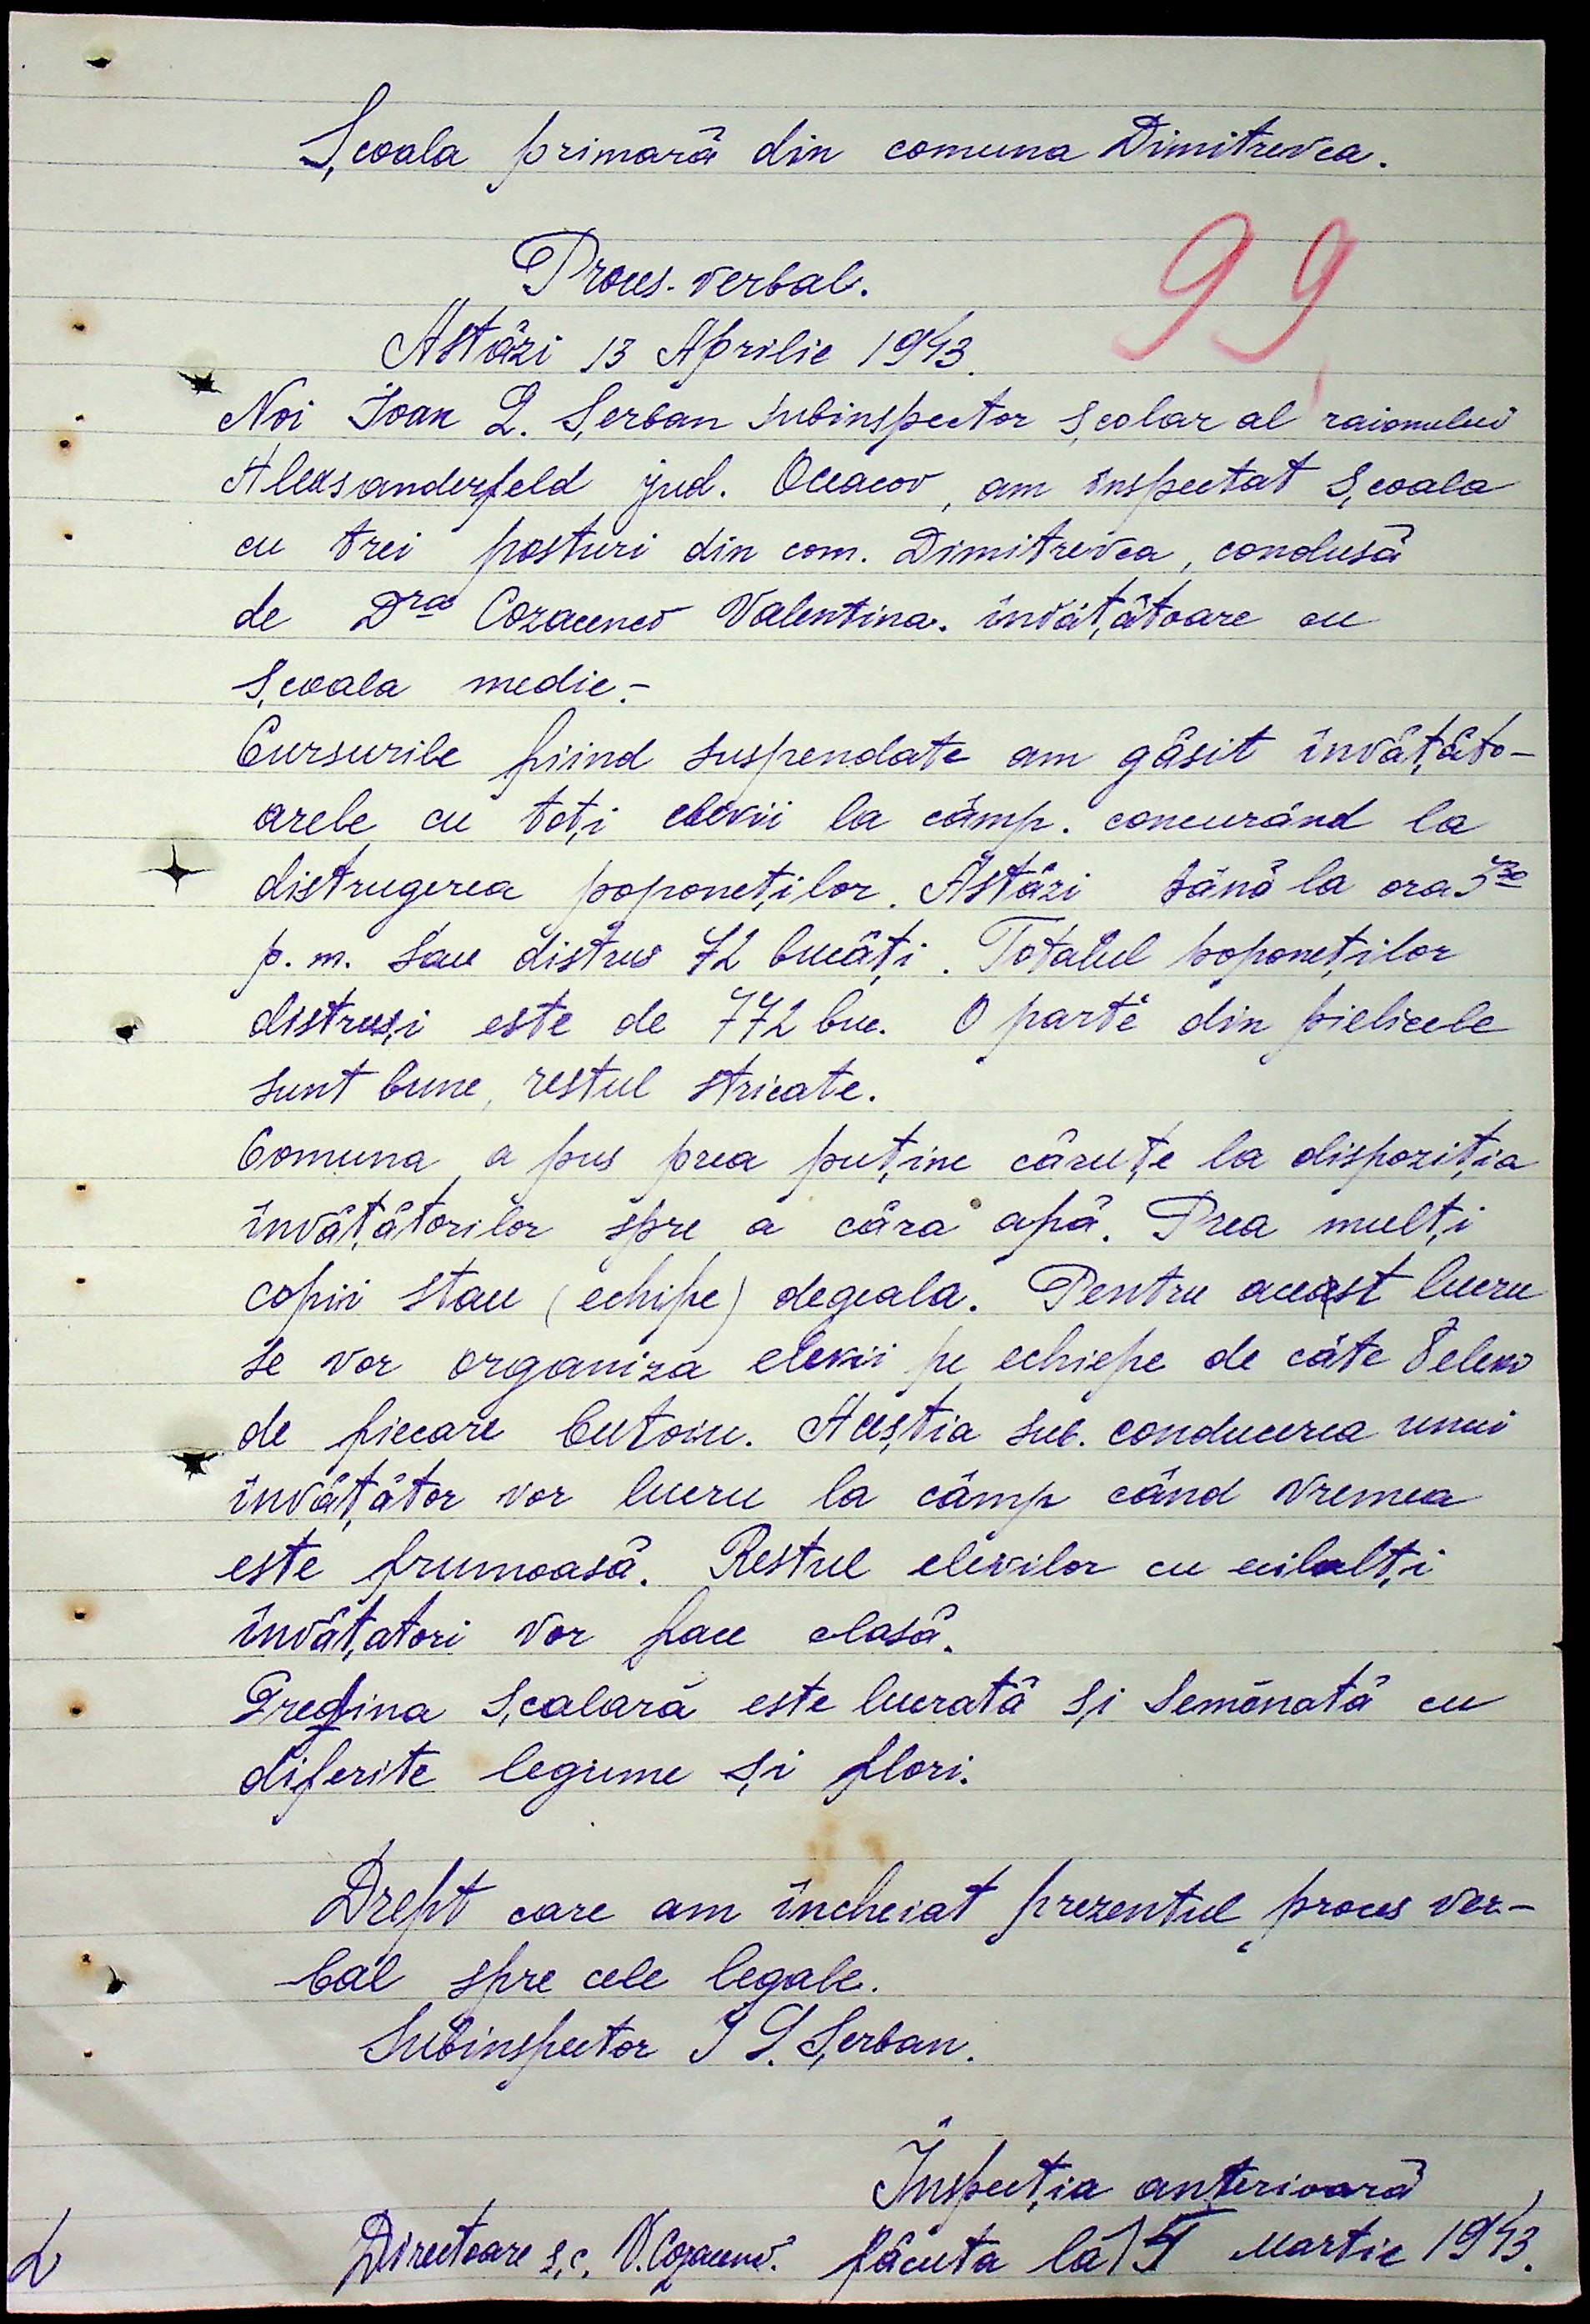 Școala primară din comuna Dimitrevca.
99
Proces-verbal.
Astăzi 13 Aprilie 1943.
Noi Ioan L. Șerban subinspector școlar al raionului
Alexsanderfeld jud. Oceacov, am inspectat școala
cu trei posturi din com. Dimitrevca, condusă
de Dra Cozacenco Valentina. învățătoare cu
școala medie.-
Cursurile fiind suspendate am găsit învățăto-
arele cu toți elevii la câmp. concurând la
distrugerea poponeților. Astăzi până la ora 5³⁰
p.m. sau distrus 72 bucăți. Totalul poponeților
distruși este de 772 buc. O parte din pielicele
sunt bune, restul stricate.
Comuna, a pus prea puține căruțe la dispoziția
învățătorilor spre a căra apă. Prea mulți
copii stau (echipe) degeala. Pentru aceast lucru
se vor organiza elevii pe echiepe de câte 8 elevi
de fiecare butoiu. Aceștia sub. conducerea unui
învățător vor lucru la câmp când vremea
este frumoasă. Restul elevilor cu ceilalți
învățatori vor face clasă.
Gredina șcalară este lucrată și semănată cu
diferite legume și flori.
Drept care am încheiat prezentul proces ver-
bal spre cele legale.
Subinspector I L. Șerban.
Inspecția anterioară
Directoare șc. V. Cozacenco. făcuta la 15 Martie 1943.